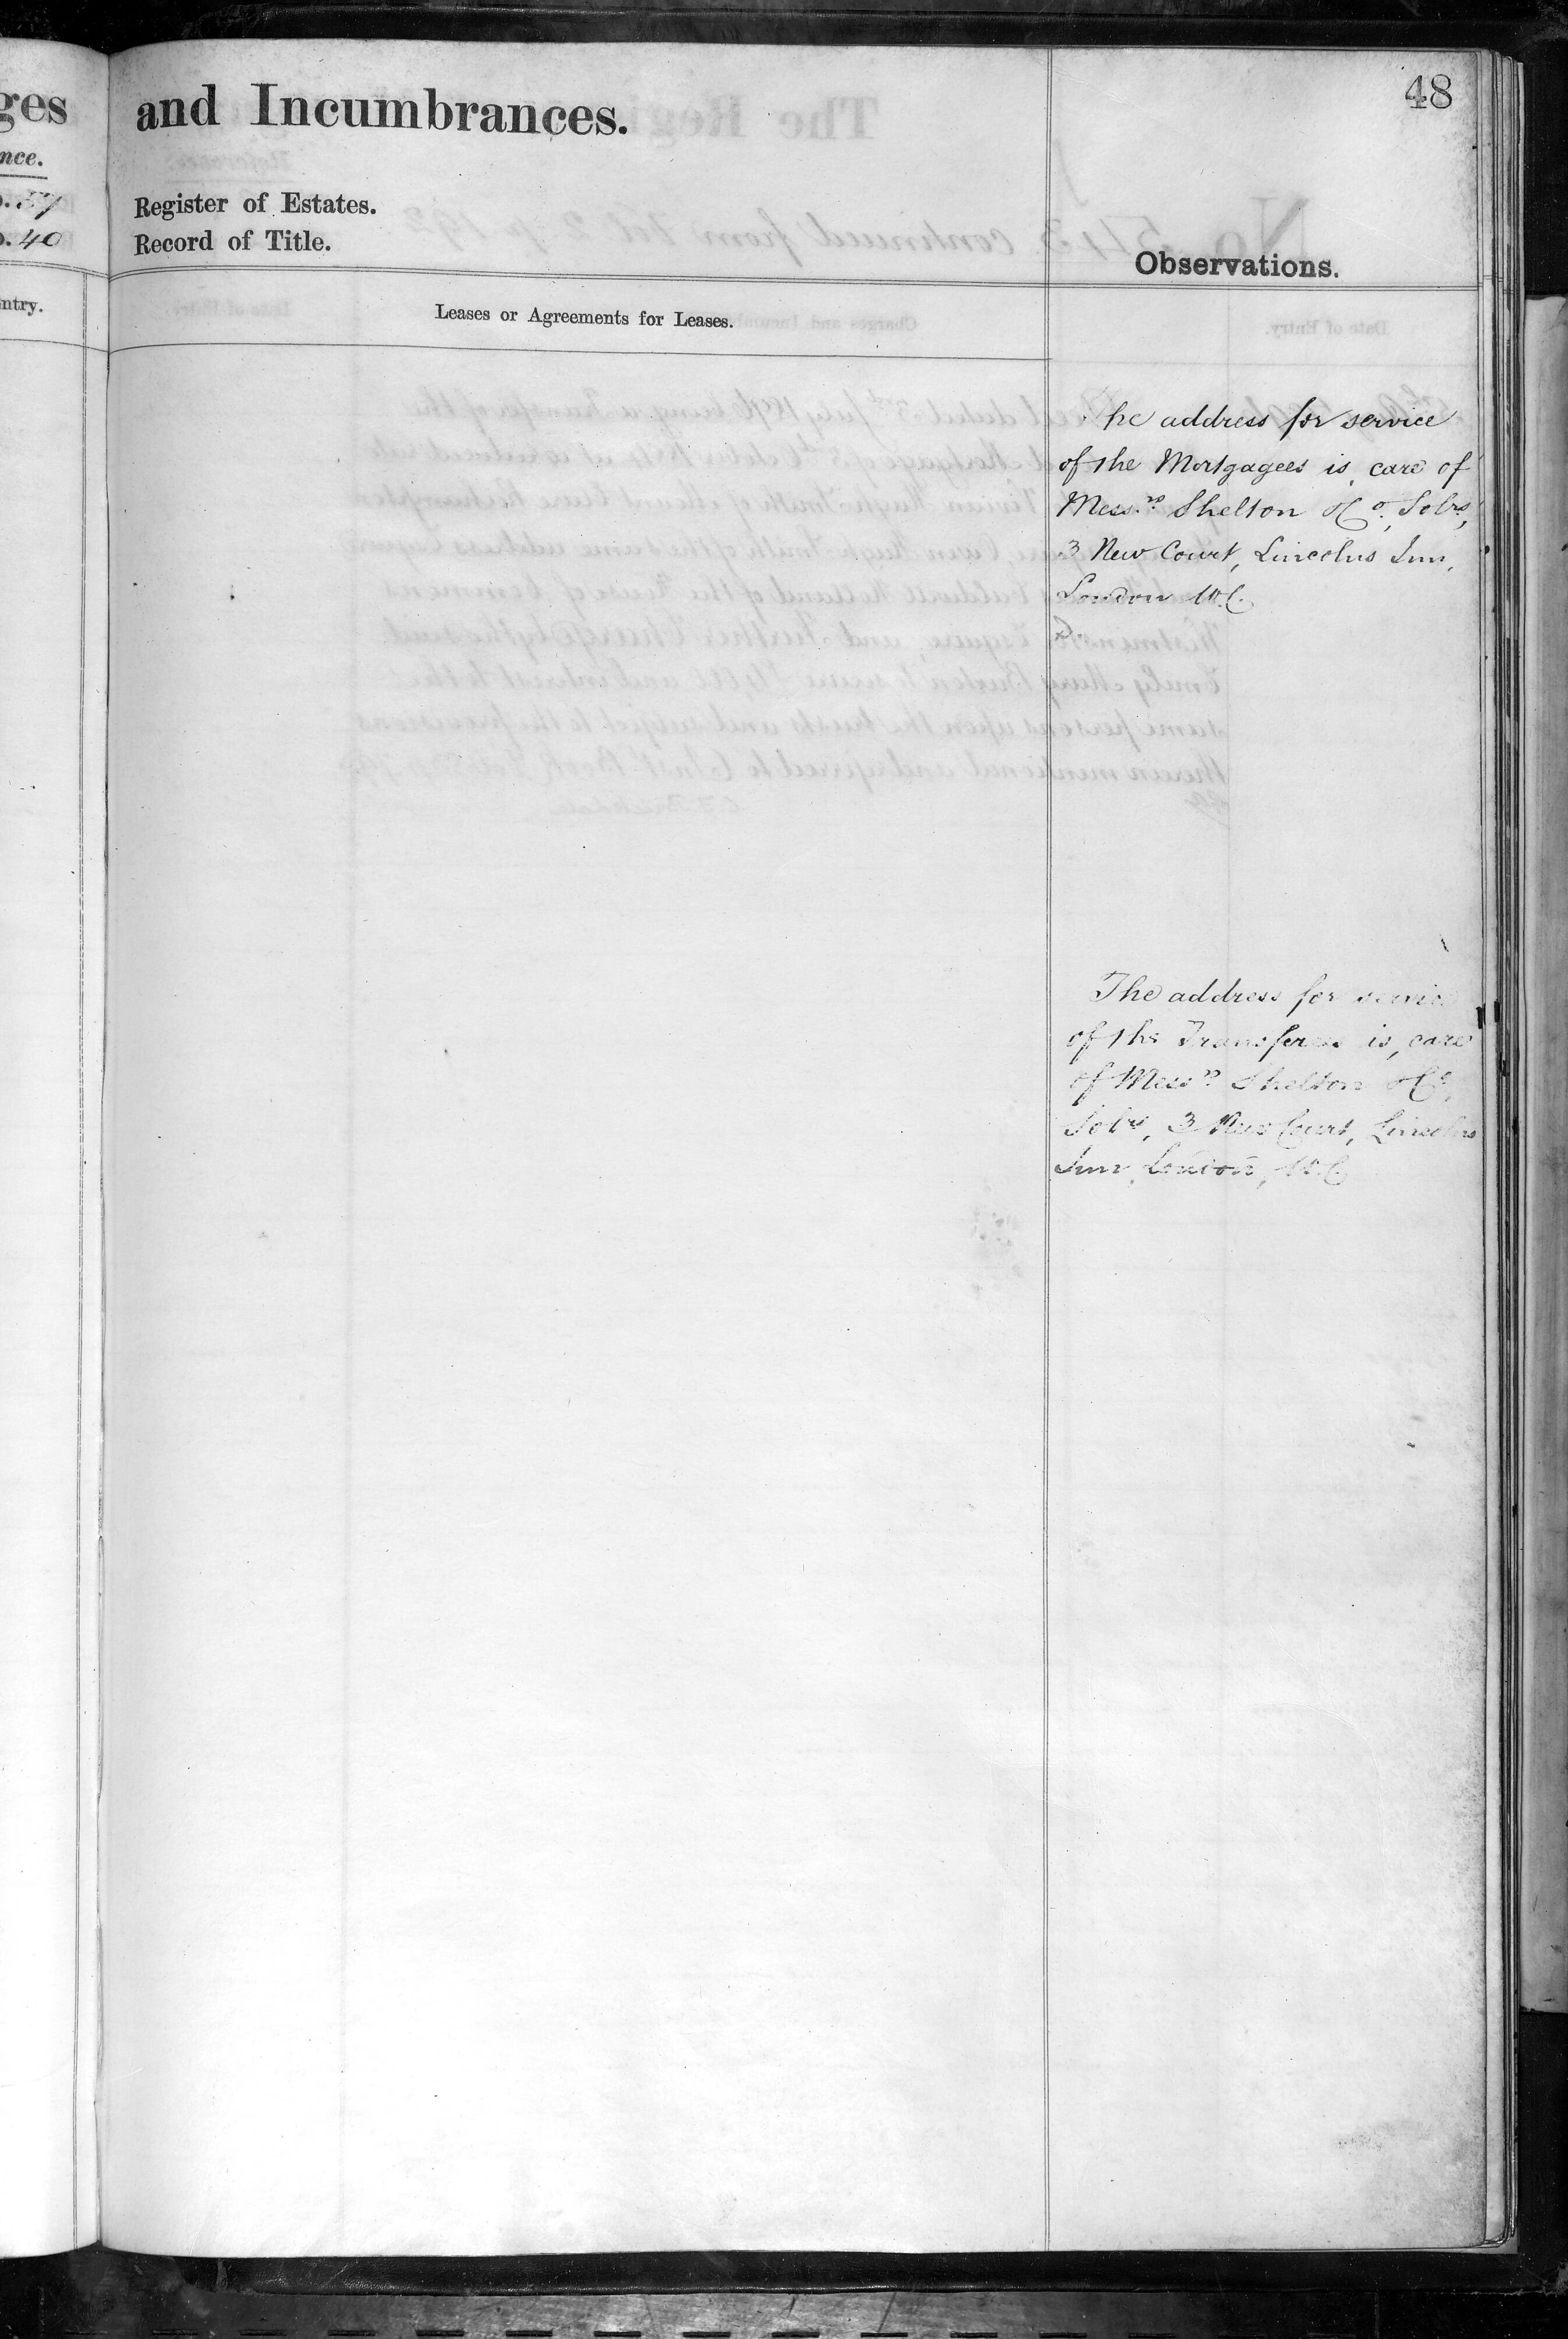 48
ges
nce.
. 57
. 40
ntry.
and Incumbrances.
Register of Estates.
Record of Title.
Leases or Agreements for Leases.
Observations.
he address for service
of the Mortgagees is, care of
Messrs Shelton & Co, Solrs,
3 New Court, Lincolns Inn,
London W.C.
The address for service
of the Transferees is, care
of Messrs Shelton & Co,
Solrs, 3 New Court, Lincolns
Inn, London, W.C.